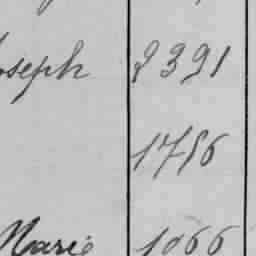 Joseph 2391
1756
Marie 1066